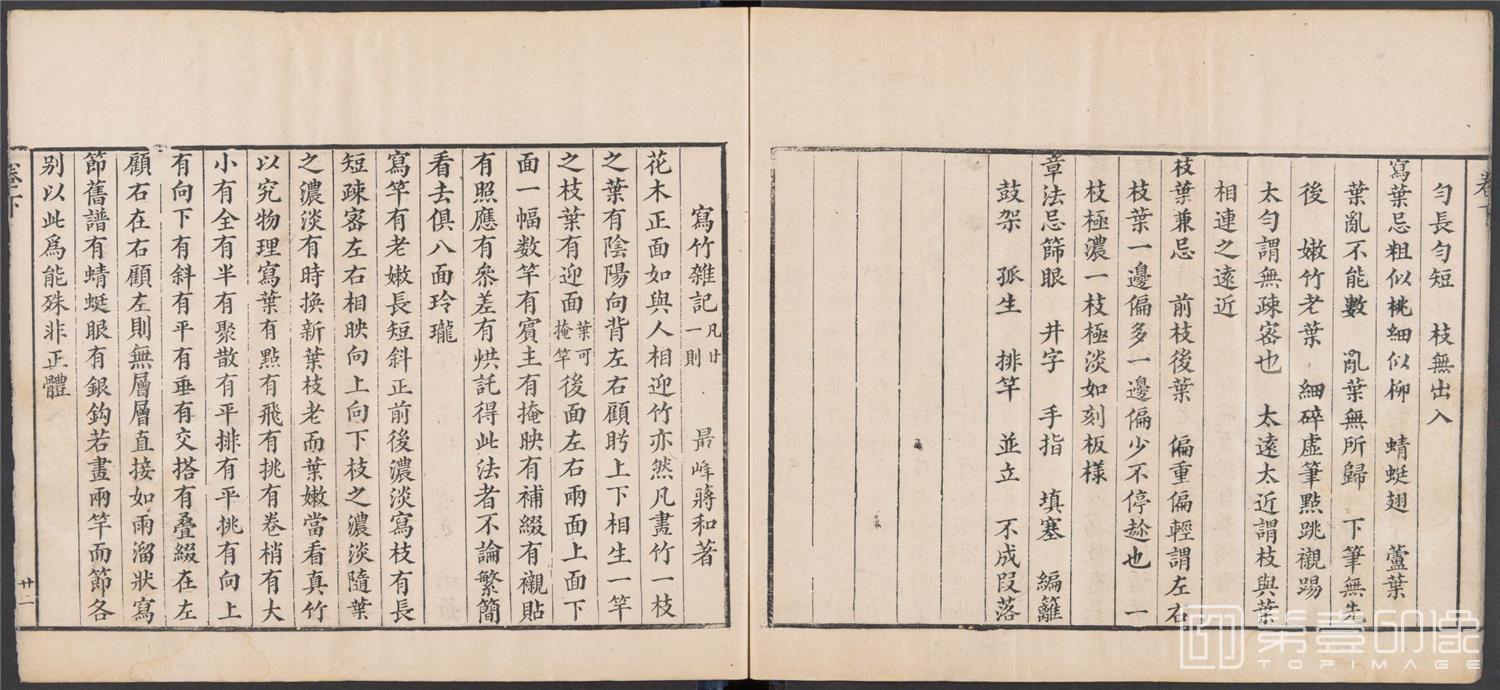 卷下
勻長勻短　枝無出入
寫葉忌粗似桃細似柳　蜻蜓翅　蘆葉
葉亂不能數　亂葉無所歸　下筆無先
後　嫩竹老葉　細碎虛筆點跳襯踢
太勻謂無疎密也　太遠太近謂枝與葉
相連之遠近
枝葉兼忌　前枝後葉　偏重偏輕謂左右
枝葉一邊偏多一邊偏少不停趁也　一
枝極濃一枝極淡如刻板樣
章法忌篩眼　井字　手指　填塞　編籬
鼓架　孤生　排竿　並立　不成段落
寫竹雜記凡廿一則　最峰蔣和著
花木正面如與人相迎竹亦然凡畫竹一枝
之葉有陰陽向背左右顧盻上下相生一竿
之枝葉有迎面葉可掩竿後面左右兩面上面下
面一幅數竿有賓主有掩映有補綴有襯貼
有照應有參差有烘託得此法者不論繁簡
看去俱八面玲瓏
寫竿有老嫩長短斜正前後濃淡寫枝有長
短疎密左右相映向上向下枝之濃淡隨葉
之濃淡有時換新葉枝老而葉嫩當看真竹
以究物理寫葉有點有飛有挑有卷梢有大
小有全有半有聚散有平排有平挑有向上
有向下有斜有平有垂有交搭有疊綴在左
顧石在右顧左則無層層直接如雨溜狀寫
節舊譜有蜻蜓眼有銀鈎若畫兩竿而節各
別以此爲能殊非正體
卷下
廿二
第壹印象
TOPIMAGE